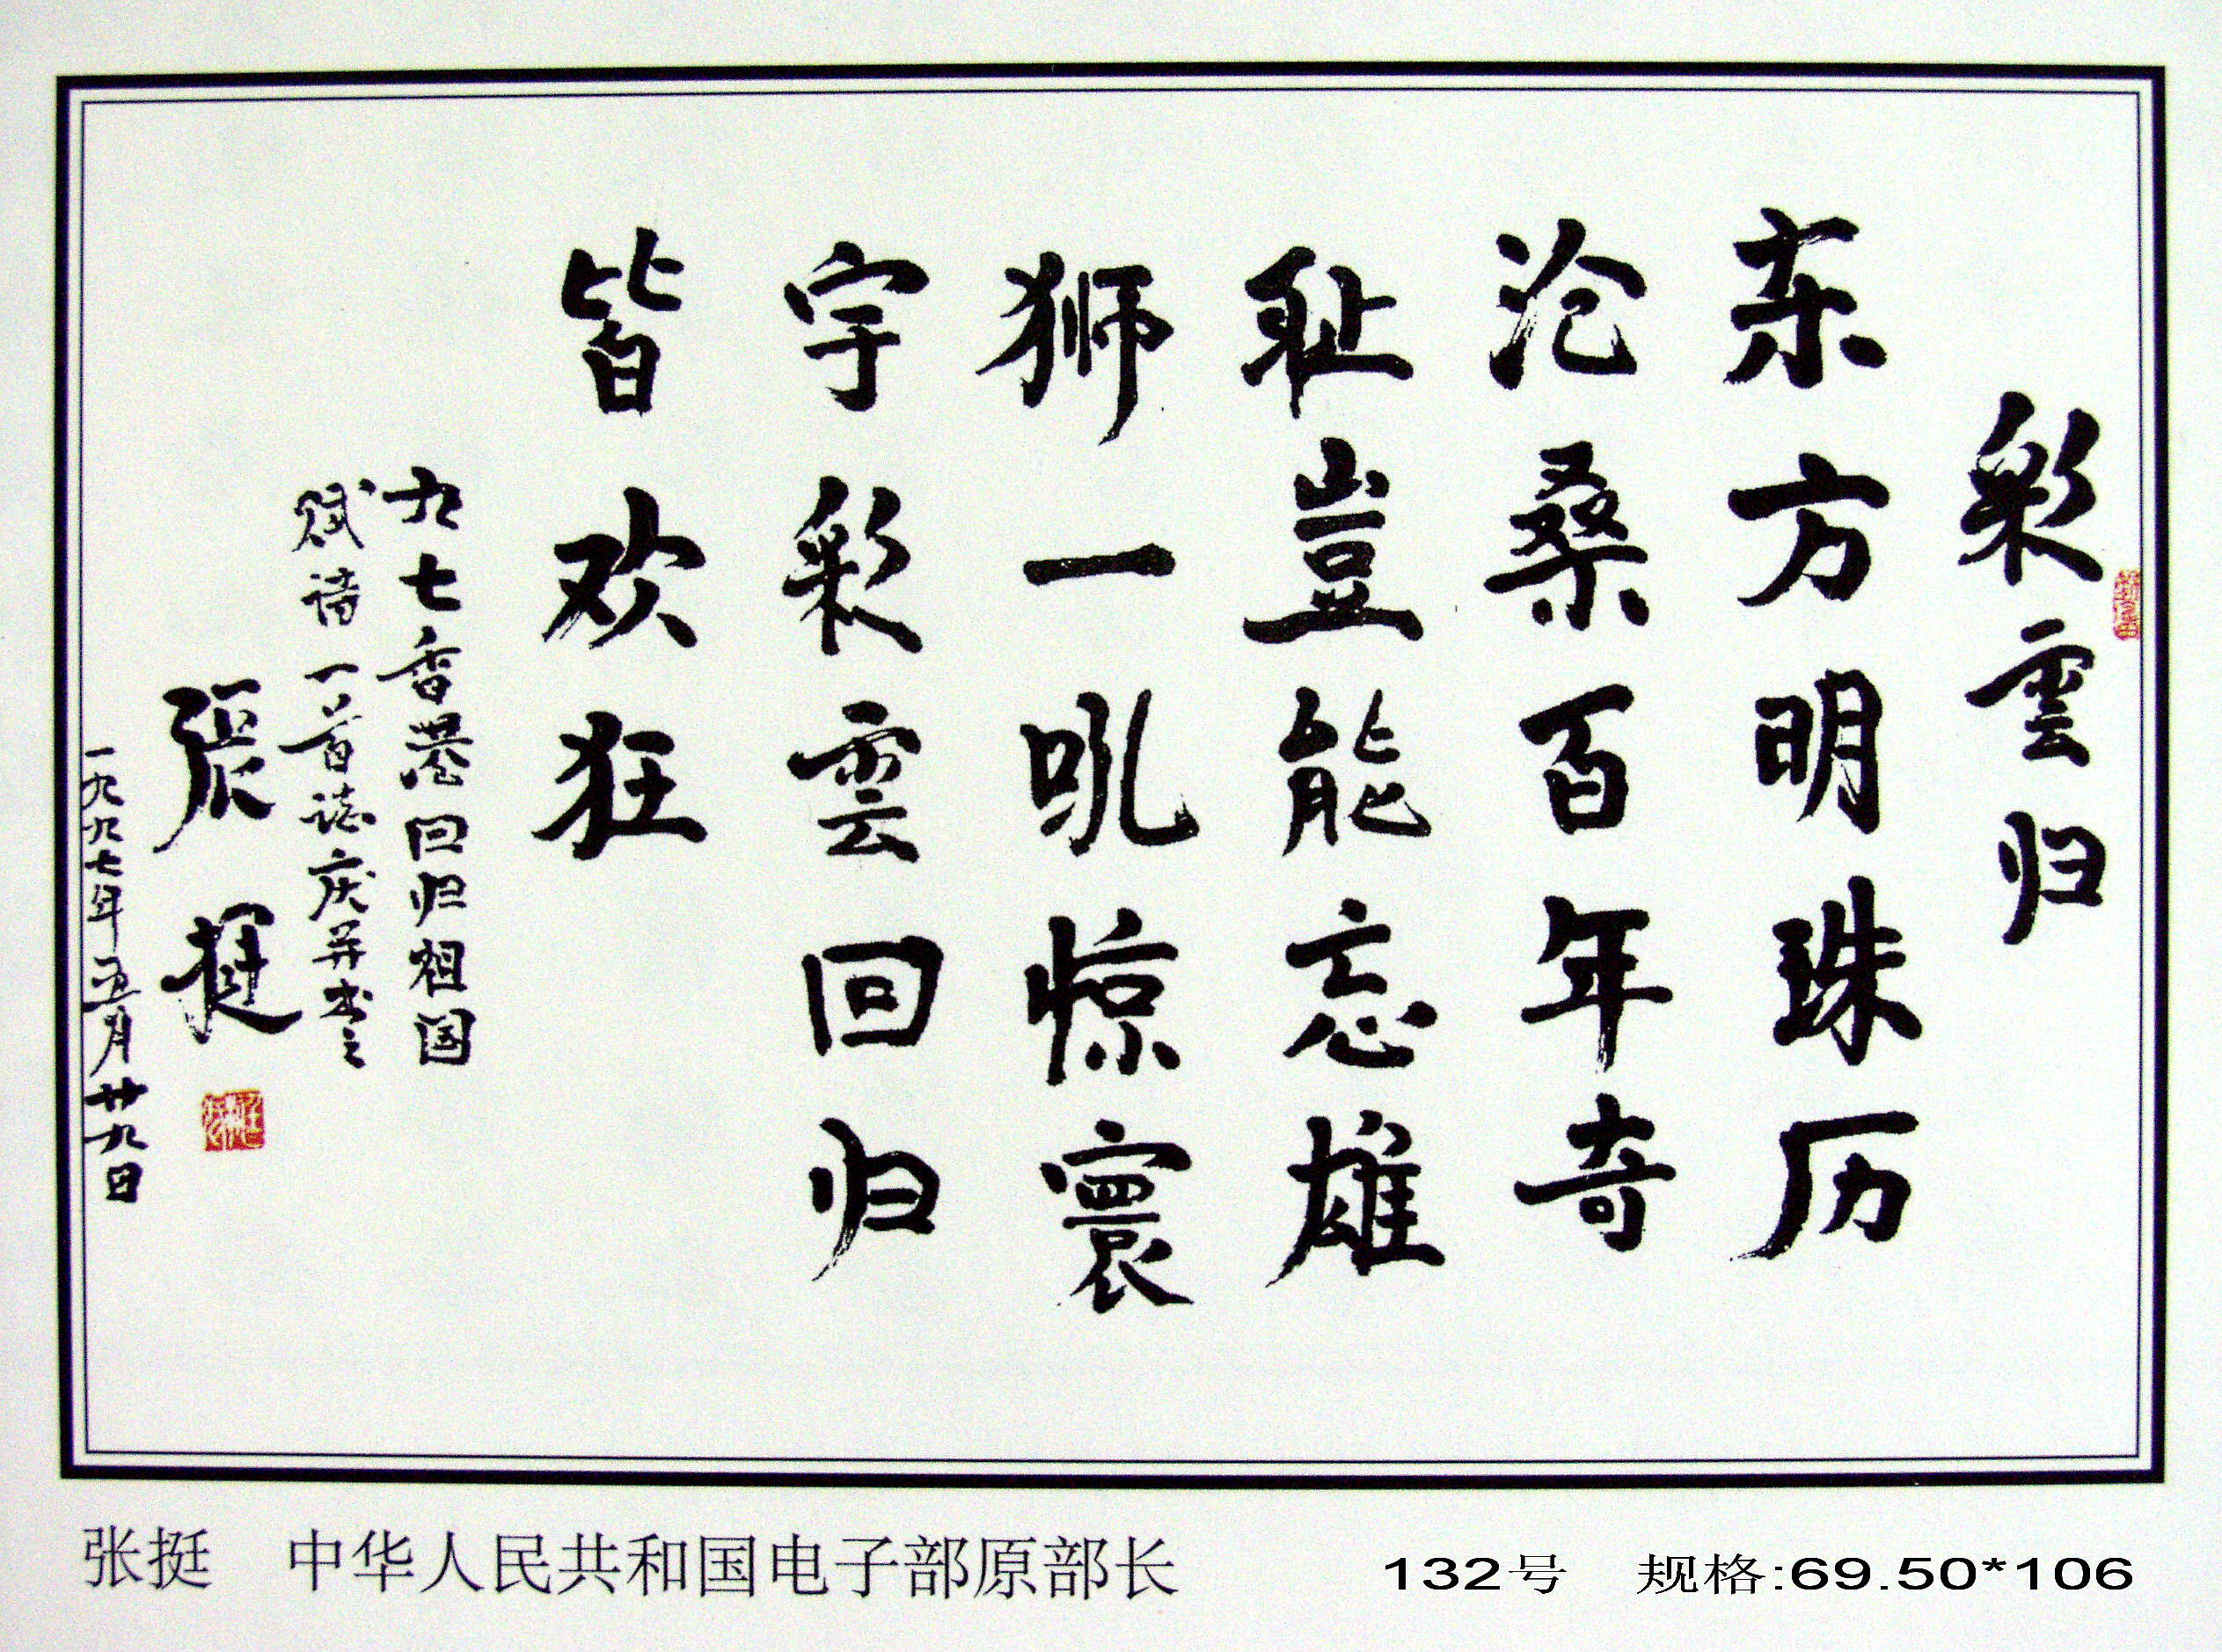 彩雲归
东方明珠历
沧桑百年奇
耻豈能忘雄
狮一吼惊寰
宇彩雲回归
皆欢狂
九七香港回归祖国
赋诗一首誌庆并书之
張挺
一九九七年五月廿九日
张挺 中华人民共和国电子部原部长 132号 规格:69.50*106